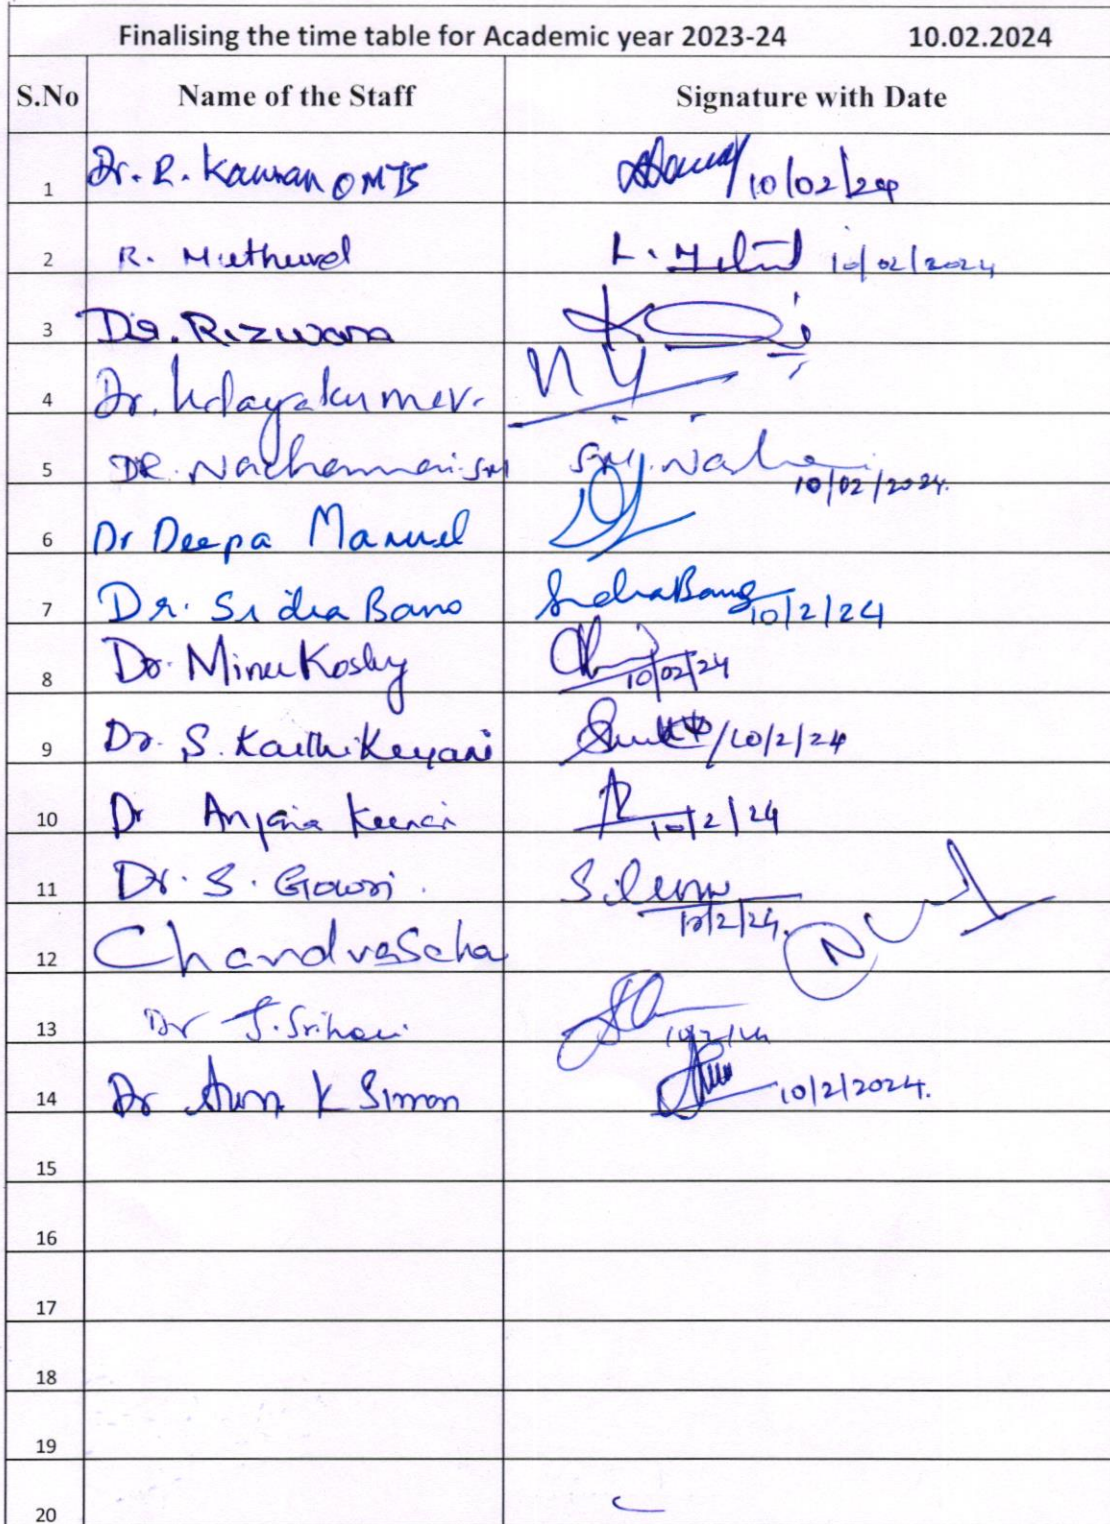 Finalising the time table for Academic year 2023-24 10.02.2024
S.No Name of the Staff Signature with Date
1 Dr. R. Kannan OMTS 10/02/24
2 R. Muthuvel 10/02/2024
3 Dr. Rizwana
4 Dr. Udayakumar.
5 DR. Nachammai.SM 10/02/2024.
6 Dr Deepa Manuel
7 Dr. Sidra Bano SidraBano 10/2/24
8 Dr. Minu Koshy 10/02/24
9 Dr. S. Karthikeyani 10/2/24
10 Dr 10/2/24
11 Dr. S. Gowri. 10/2/24.
12 N
13 Dr J. Srihari
14 Dr Arun K Simon 10/2/2024.
15
16
17
18
19
20